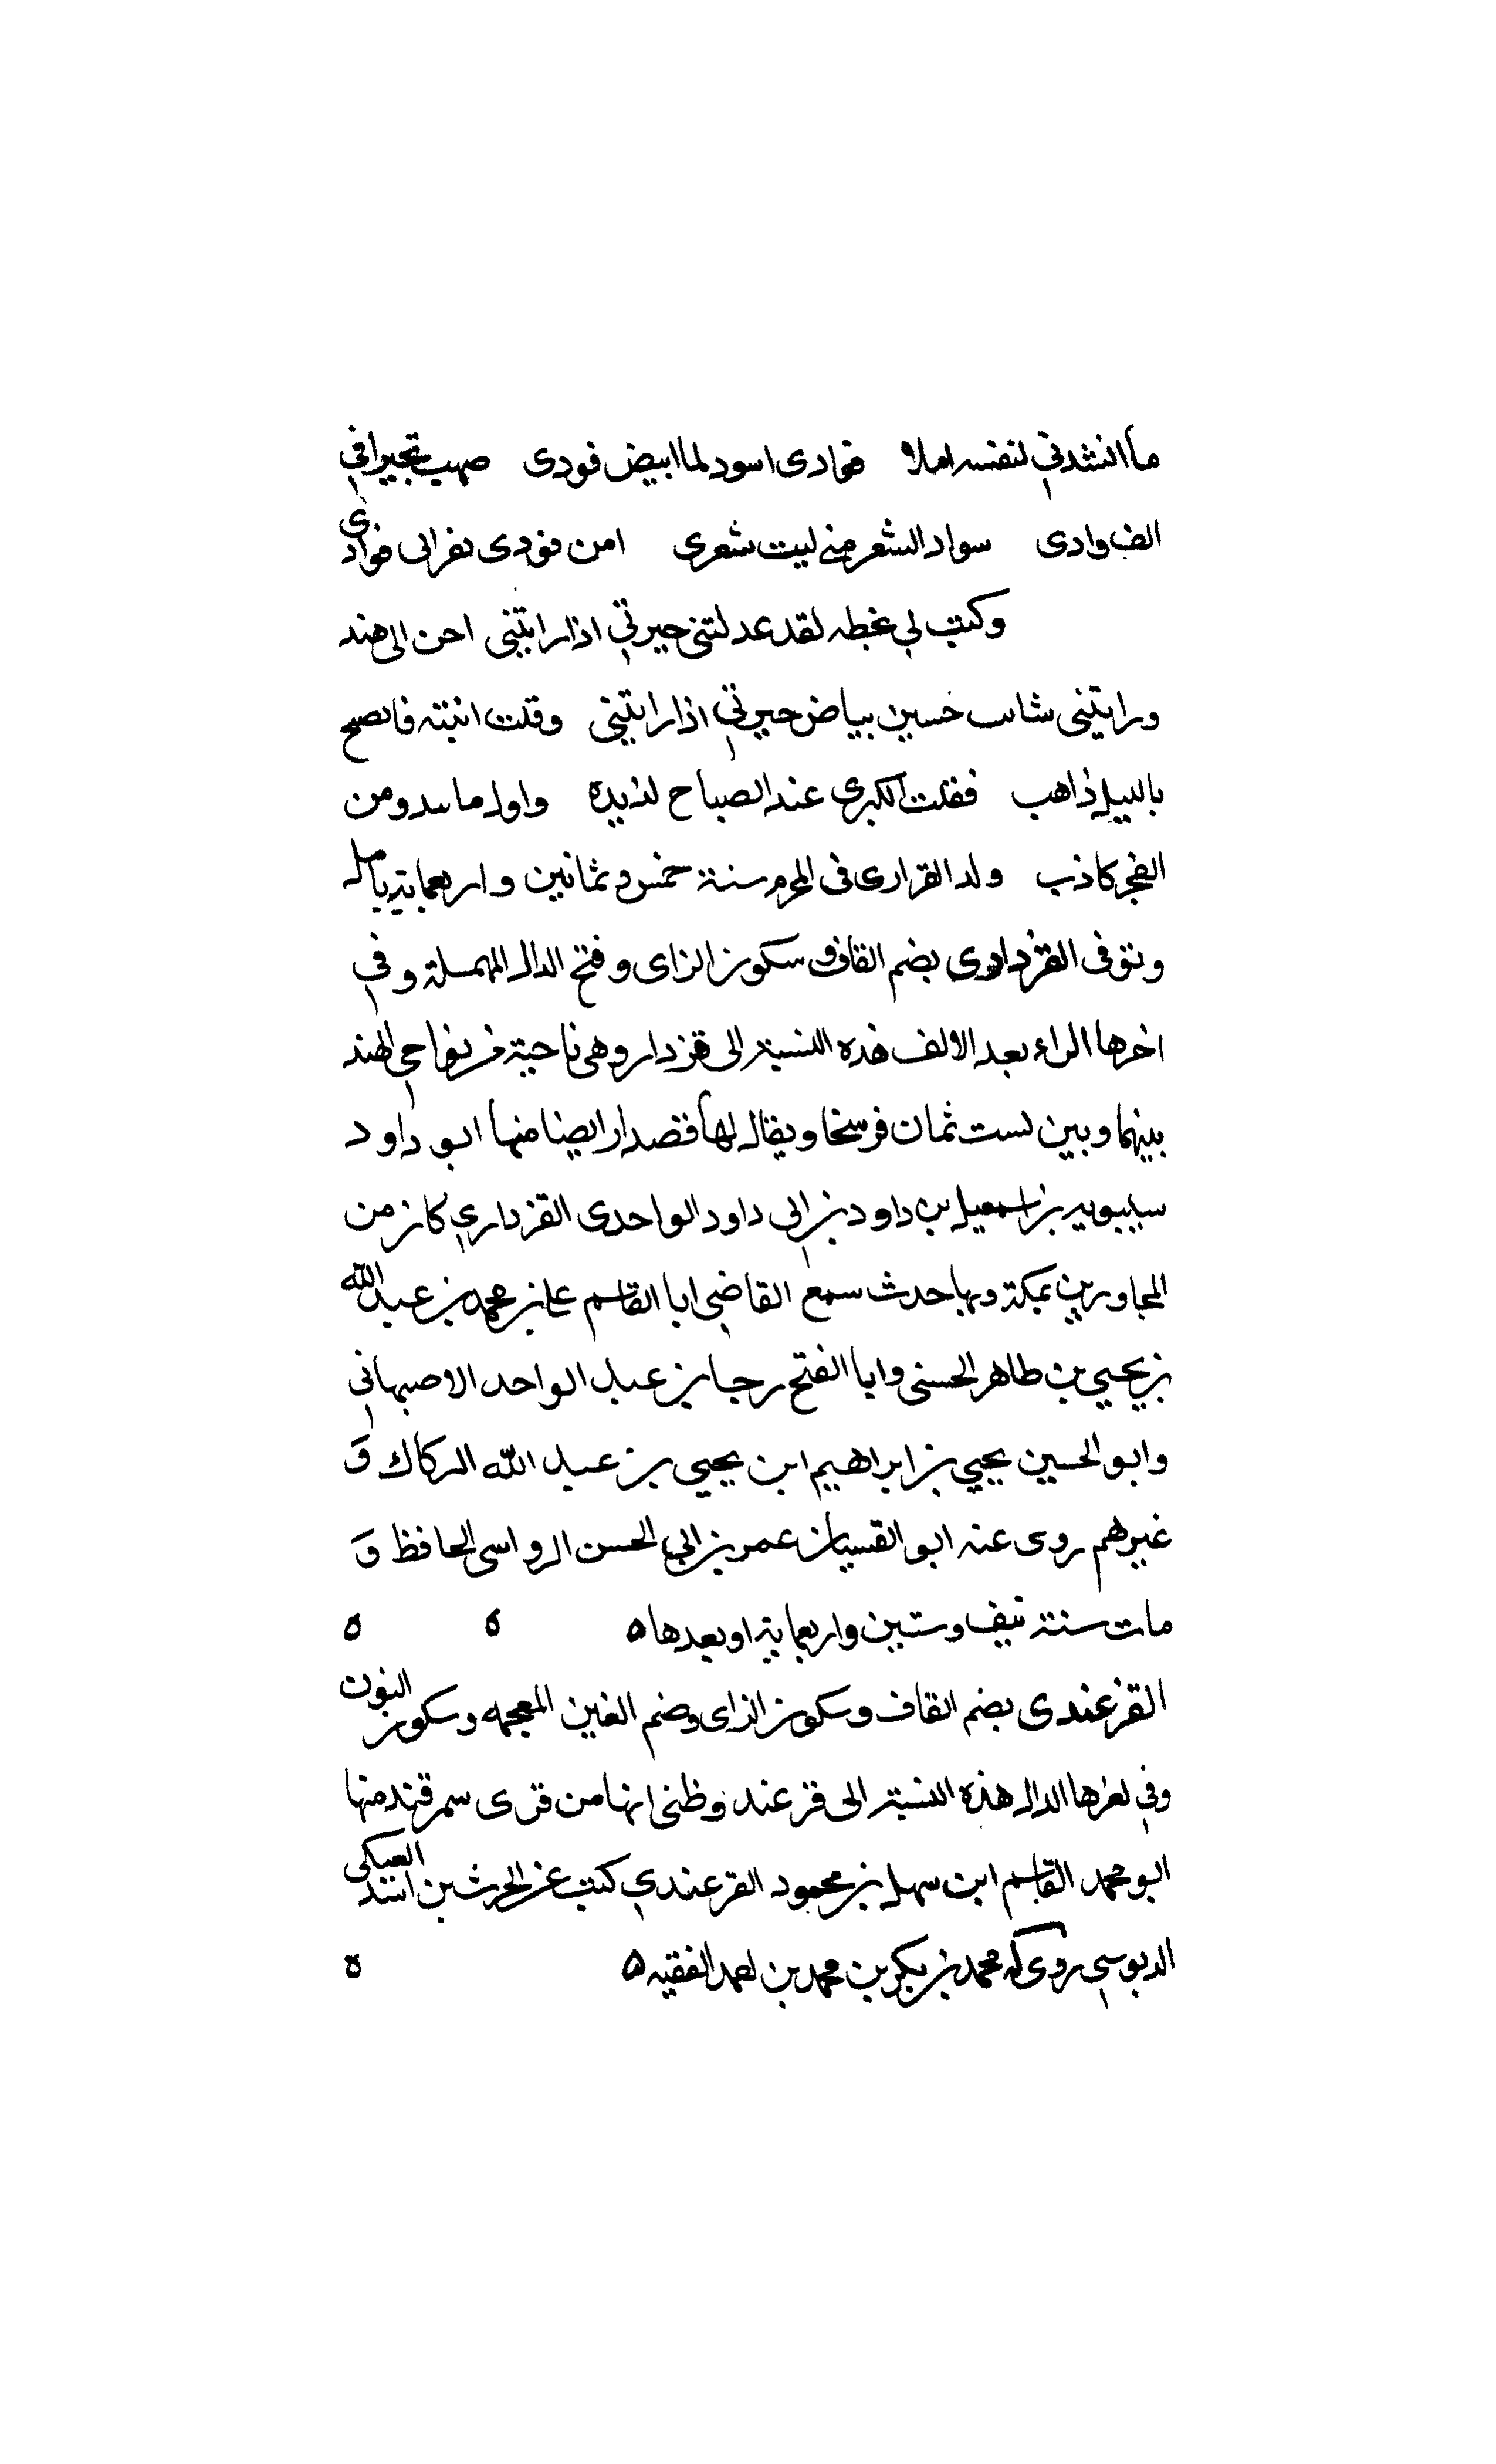 ما انشدني لنفسه املا فوادى اسود لما ابيض فودى صهيب تجيرا في
الف وادى سواد الشعر منى ليت شعرى امن فودى نفر الى فوادى
وكتب لي بخطه لقد عدلتنى جيرتي اذا رايتنى احن الى هند
ورايتنى شاب خسين بياض جيرتي اذا رايتنى وقلت انبته فالصبح
بالليل ذاهب فقلت الكرى عند الصباح لذيذه واول ما يبدو من
الفجر كاذب ولد القرارى فى المحرم سنة خمس وثمانين واربعماية بامله
وتوفى القزدارى بضم القاف وسكون الزاى وفتح الدال المهملة وفي
اخرها الراء بعد الالف هذه النسبة الى قزدار وهى ناحية من نواحي الهند
بينها وبين بست ثمان فرسخا ويقال لها قصدار ايضا منها ابو داود
سيبويه بن اسمعيل بن داود بن ابي داود الواحدى القزداري كان من
المجاورين بمكة وبها حدث سمع القاضي ابا القاسم على بن محمد بن عبد الله
بن يحيي بن طاهر الحسنى وابا الفتح رجا بن عبد الواحد الاصبهاني
وابو الحسين يحيي بن ابراهيم ابن يحيي بن عبد الله الركاك و
غيرهم روى عنه ابو القسيان عمر بن ابي الحسن الرواسى الحافظ و
مات سنة نيف وستين واربعماية او بعدها ه ه ه
القزغندى بضم القاف وسكون الزاى وضم الغين المعجمه وسكون النون
وفي اخرها الدال هذه النسبة الى قزغند وظنى انها من قرى سمرقند منها
ابو محمد القاسم ابن سهل بن محمود القزغندي كتب عن الحرث بن اسد العبكى
الدبوسي روى له محمد بن بكر بن محمد بن احمد الفقيه ه ه